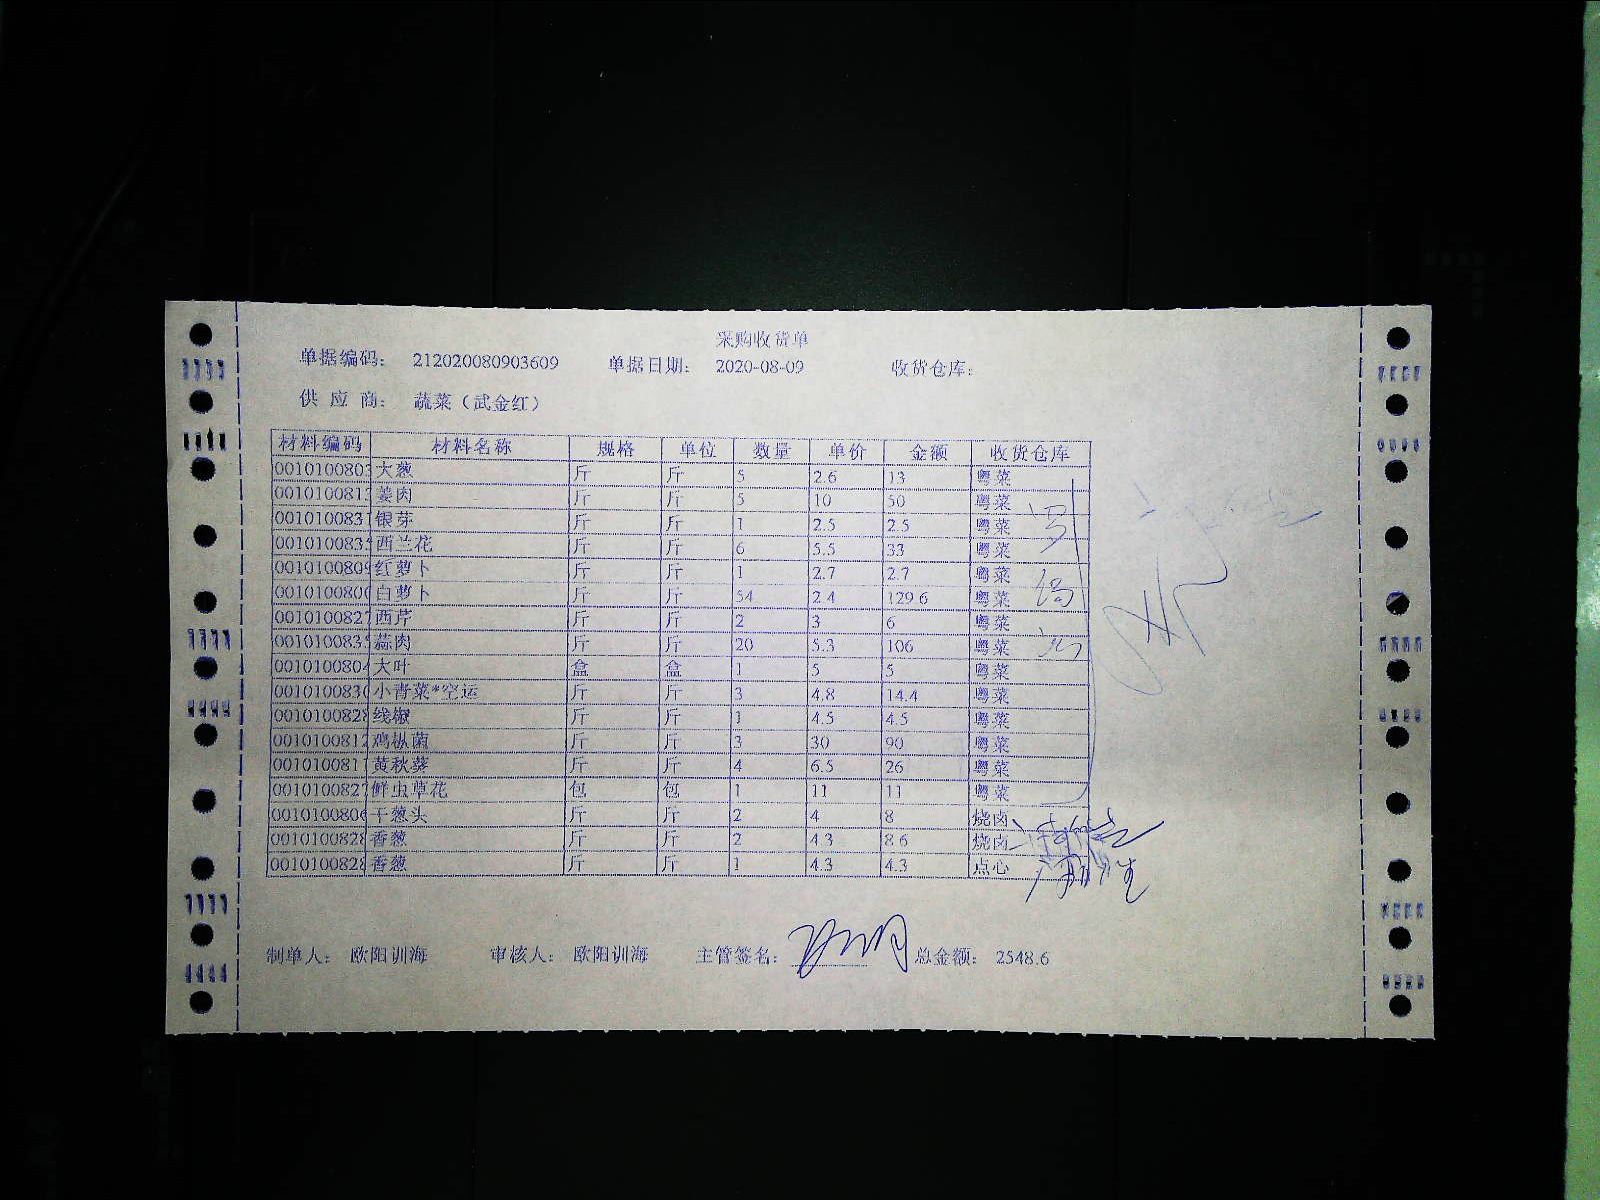 采购收货单
单据编码： 212020080903609 单据日期： 2020-08-09 收货仓库：
供 应 商： 蔬菜（武金红）
材料编码 材料名称 规格 单位 数量 单价 金额 收货仓库
0010100803 大葱 斤 斤 5 2.6 13 粤菜
001010081 姜肉 斤 斤 5 10 50 粤菜
001010083 银芽 斤 斤 1 2.5 2.5 粤菜
001010083 西兰花 斤 斤 6 5.5 33 粤菜
001010080 红萝卜 斤 斤 1 2.7 2.7 粤菜
001010080 白萝卜 斤 斤 54 2.4 129.6 粤菜
0010100827 西芹 斤 斤 2 3 6 粤菜
001010083 蒜肉 斤 斤 20 5.3 106 粤菜
001010080 大叶 盒 盒 1 5 5 粤菜
001010083 小青菜*空运 斤 斤 3 4.8 14.4 粤菜
001010082 线椒 斤 斤 1 4.5 4.5 粤菜
001010081 鸡枞菌 斤 斤 3 30 90 粤菜
001010081 黄秋葵 斤 斤 4 6.5 26 粤菜
0010100827 鲜虫草花 包 包 1 11 11 粤菜
001010080 干葱头 斤 斤 2 4 8 烧卤
001010082 香葱 斤 斤 2 4.3 8.6 烧卤
001010082 香葱 斤 斤 1 4.3 4.3 点心
制单人： 欧阳训海 审核人： 欧阳训海 主管签名： 总金额： 2548.6